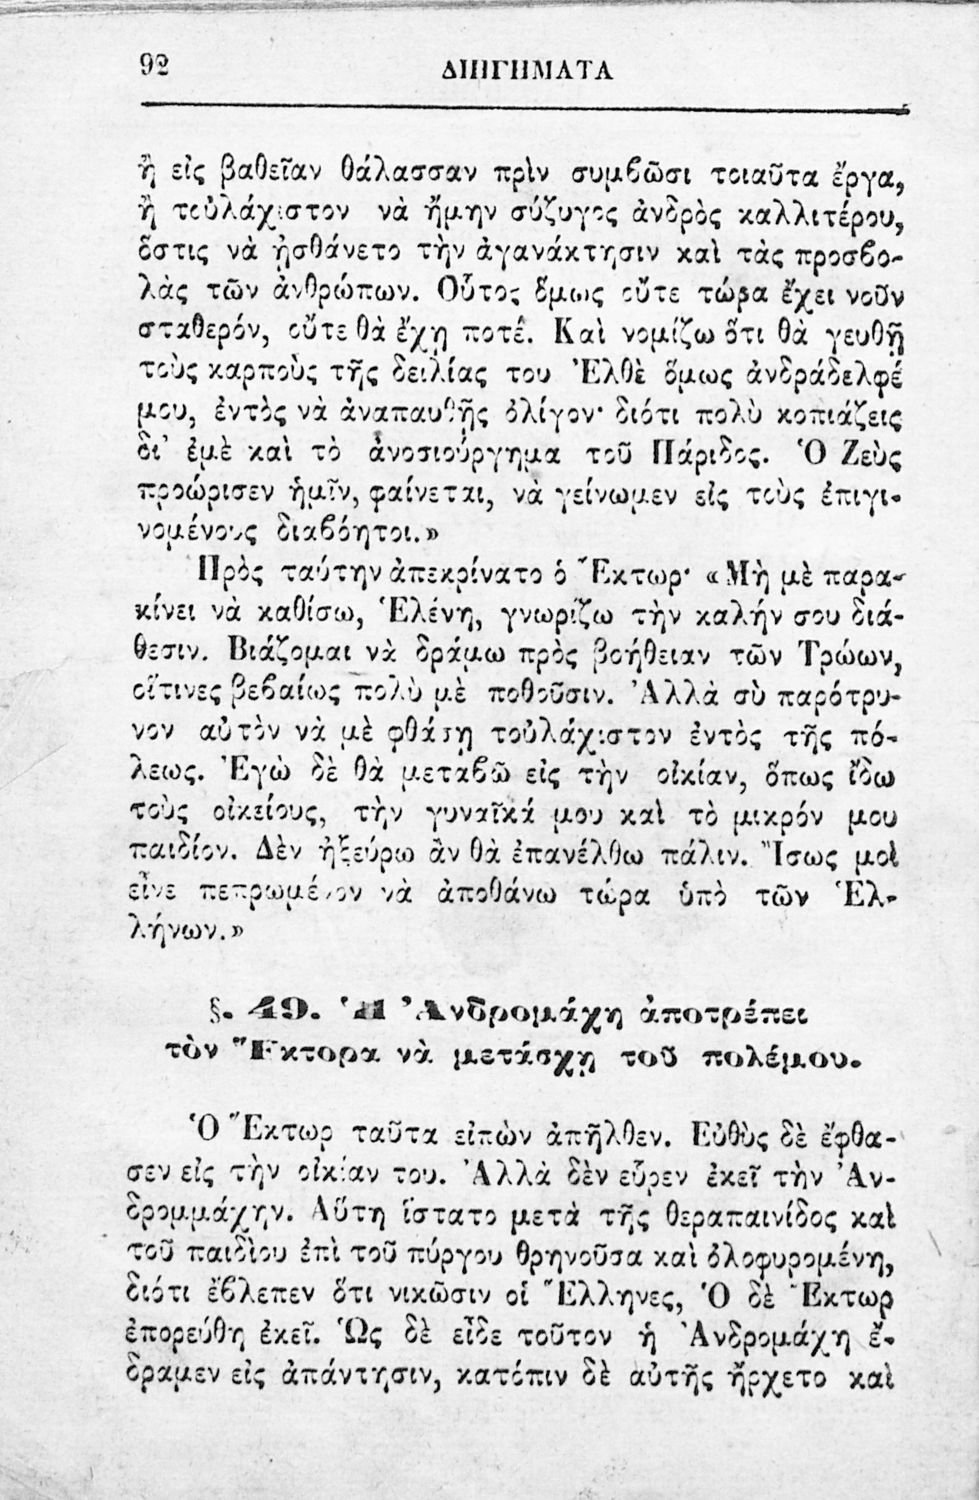 92 ΔΙΗΓΗΜΑΤΑ
ἢ εἰς βαθεῖαν θάλασσαν πρὶν συμβῶσι τοιαῦτα ἔργα,
ἢ τοὐλάχιστον νὰ ἤμην σύζυγος ἀνδρὸς καλλιτέρου,
ὅστις νὰ ᾐσθάνετο τὴν ἀγανάκτησιν καὶ τὰς προσβο-
λὰς τῶν ἀνθρώπων. Οὗτος ὅμως οὔτε τώρα ἔχει νοῦν
σταθερόν, οὔτε θὰ ἔχῃ ποτέ. Καὶ νομίζω ὅτι θὰ γευθῇ
τοὺς καρποὺς τῆς δειλίας του Ἐλθὲ ὅμως ἀνδράδελφέ
μου, ἐντὸς νὰ ἀναπαυθῇς ὀλίγον· διότι πολὺ κοπιάζεις
δι' ἐμὲ καὶ τὸ ἀνοσιούργημα τοῦ Πάριδος. Ὁ Ζεὺς
προώρισεν ἡμῖν, φαίνεται, νὰ γείνωμεν εἰς τοὺς ἐπιγι-
νομένους διαβόητοι.»
Πρὸς ταύτην ἀπεκρίνατο ὁ Ἕκτωρ· «Μὴ μὲ παρα-
κίνει νὰ καθίσω, Ἑλένη, γνωρίζω τὴν καλήν σου διά-
θεσιν. Βιάζομαι νὰ δράμω πρὸς βοήθειαν τῶν Τρώων,
οἵτινες βεβαίως πολὺ μὲ ποθοῦσιν. Ἀλλὰ σὺ παρότρυ-
νον αὐτὸν νὰ μὲ φθάσῃ τοὐλάχιστον ἐντὸς τῆς πό-
λεως. Ἐγὼ δὲ θὰ μεταβῶ εἰς τὴν οἰκίαν, ὅπως ἴδω
τοὺς οἰκείους, τὴν γυναῖκά μου καὶ τὸ μικρόν μου
παιδίον. Δὲν ἠξεύρω ἂν θὰ ἐπανέλθω πάλιν. Ἴσως μοὶ
εἶνε πεπρωμένον νὰ ἀποθάνω τώρα ὑπὸ τῶν Ἑλ-
λήνων.»
§. 49. Ἡ Ἀνδρομάχη ἀποτρέπει
τὸν Ἕκτορα νὰ μετάσχῃ τοῦ πολέμου.
Ὁ Ἕκτωρ ταῦτα εἰπὼν ἀπῆλθεν. Εὐθὺς δὲ ἔφθα-
σεν εἰς τὴν οἰκίαν του. Ἀλλὰ δὲν εὗρεν ἐκεῖ τὴν Ἀν-
δρομμάχην. Αὕτη ἵστατο μετὰ τῆς θεραπαινίδος καὶ
τοῦ παιδίου ἐπὶ τοῦ πύργου θρηνοῦσα καὶ ὀλοφυρομένη,
διότι ἔβλεπεν ὅτι νικῶσιν οἱ Ἕλληνες, Ὁ δὲ Ἕκτωρ
ἐπορεύθη ἐκεῖ. Ὡς δὲ εἶδε τοῦτον ἡ Ἀνδρομάχη ἔ-
δραμεν εἰς ἀπάντησιν, κατόπιν δὲ αὐτῆς ἤρχετο καὶ